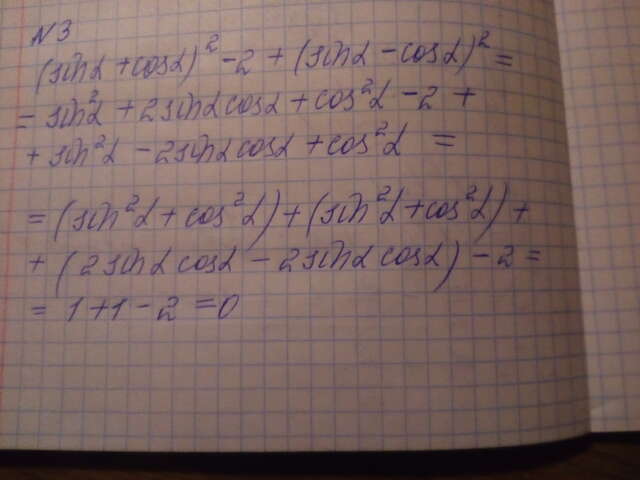 №3
(sinα + cosα)² - 2 + (sinα - cosα)² =
= sin²α + 2sinα cosα + cos²α - 2 +
+ sin²α - 2sinα cosα + cos²α =
= (sin²α + cos²α) + (sin²α + cos²α) +
+ (2sinα cosα - 2sinα cosα) - 2 =
= 1 + 1 - 2 = 0